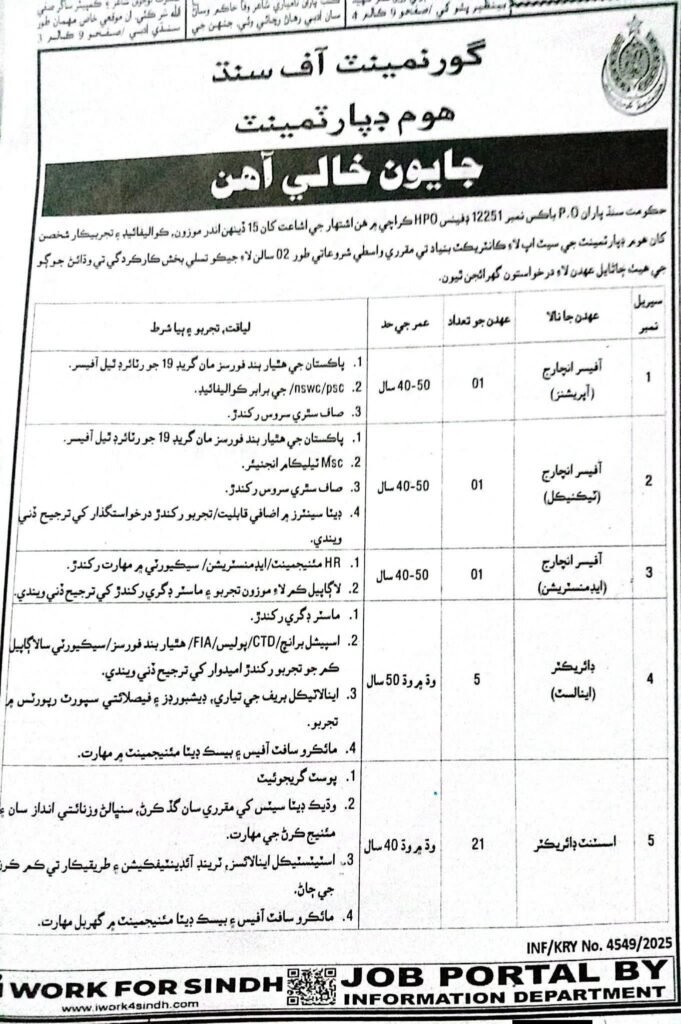 بينظير پلو کي /صفحو 9 کالم 4
سنڌي ادبي /صفحو 9 کالم 3
گورنمينٽ آف سنڌ
هوم ڊپارٽمينٽ
جايون خالي آهن
حڪومت سنڌ پاران P.O باڪس نمبر 12251 ڊفينس HPO ڪراچي ۾ هن اشتهار جي اشاعت کان 15 ڏينهن اندر موزون، ڪواليفائيڊ ۽ تجربيڪار شخصن
کان هوم ڊپارٽمينٽ جي سيٽ اپ لاءِ ڪانٽريڪٽ بنياد تي مقرري واسطي شروعاتي طور 02 سالن لاءِ جيڪو تسلي بخش ڪارڪردگي تي وڌائڻ جوڳو
جي هيٺ ڄاڻايل عهدن لاءِ درخواستون گهرائجن ٿيون.
سيريل نمبر
عهدن جا نالا
عهدن جو تعداد
عمر جي حد
لياقت، تجربو ۽ ٻيا شرط
1
آفيسر انچارج
(آپريشنز)
01
40-50 سال
1. پاڪستان جي هٿيار بند فورسز مان گريڊ 19 جو رٽائرڊ ٿيل آفيسر.
2. nswc/psc/ جي برابر ڪواليفائيڊ.
3. صاف سٿري سروس رکندڙ.
2
آفيسر انچارج
(ٽيڪنيڪل)
01
40-50 سال
1. پاڪستان جي هٿيار بند فورسز مان گريڊ 19 جو رٽائرڊ ٿيل آفيسر.
2. Msc ٽيليڪام انجنيئر.
3. صاف سٿري سروس رکندڙ.
4. ڊيٽا سينٽرز ۾ اضافي قابليت/تجربو رکندڙ درخواستگذار کي ترجيح ڏني
ويندي.
3
آفيسر انچارج
(ايڊمنسٽريشن)
01
40-50 سال
1. HR مئنيجمينٽ/ايڊمنسٽريشن/سيڪيورٽي ۾ مهارت رکندڙ.
2. لاڳاپيل ڪم لاءِ موزون تجربو ۽ ماسٽر ڊگري رکندڙ کي ترجيح ڏني ويندي.
4
ڊائريڪٽر
(اينالسٽ)
5
وڌ ۾ وڌ 50 سال
1. ماسٽر ڊگري رکندڙ.
2. اسپيشل برانچ/CTD/پوليس/FIA/هٿيار بند فورسز/سيڪيورٽي سان لاڳاپيل
ڪم جو تجربو رکندڙ اميدوار کي ترجيح ڏني ويندي.
3. اينالائيٽيڪل بريف جي تياري، ڊيشبورڊز ۽ فيصلائتي سپورٽ رپورٽس ۾
تجربو.
4. مائڪرو سافٽ آفيس ۽ بيسڪ ڊيٽا مئنيجمينٽ ۾ مهارت.
5
اسسٽنٽ ڊائريڪٽر
21
وڌ ۾ وڌ 40 سال
1. پوسٽ گريجوئيٽ
2. وڌيڪ ڊيٽا سيٽس کي مقرري سان گڏ ڪرڻ، سنڀالڻ وزنائتي انداز سان ۽
مئنيج ڪرڻ جي مهارت.
3. اسٽيٽسٽيڪل اينالائسز، ٽرينڊ آئڊينٽيفڪيشن ۽ طريقيڪار تي ڪم ڪرڻ
جي ڄاڻ.
4. مائڪرو سافٽ آفيس ۽ بيسڪ ڊيٽا مئنيجمينٽ ۾ گهربل مهارت.
INF/KRY No. 4549/2025
WORK FOR SINDH
www.iwork4sindh.com
JOB PORTAL BY
INFORMATION DEPARTMENT